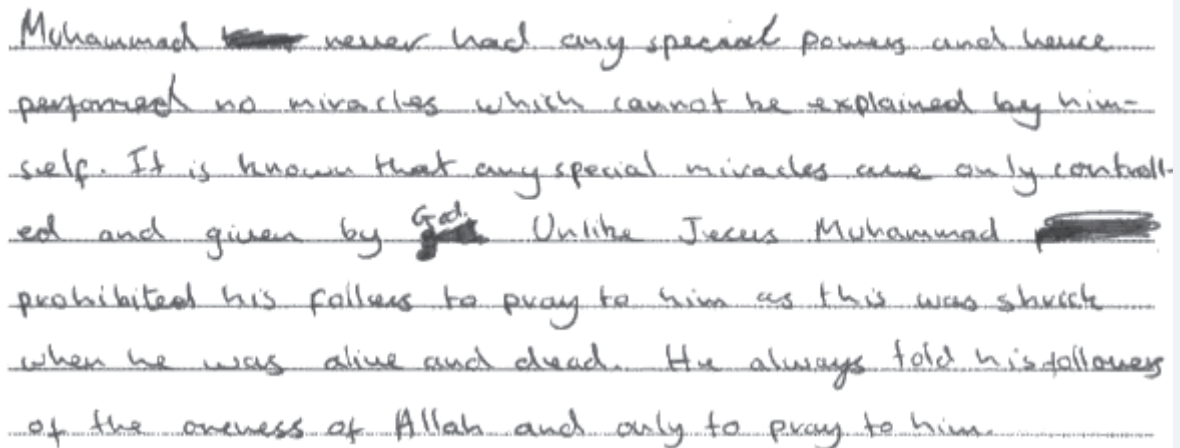 Muhammad never had any special powers and hence
performed no miracles which cannot be explained by him-
self. It is known that any special miracles are only controll-
ed and given by God. Unlike Jesus Muhammad
prohibited his follwers to pray to him as this was shrick
when he was alive and dead. He always told his followers
of the oneness of Allah and only to pray to him.